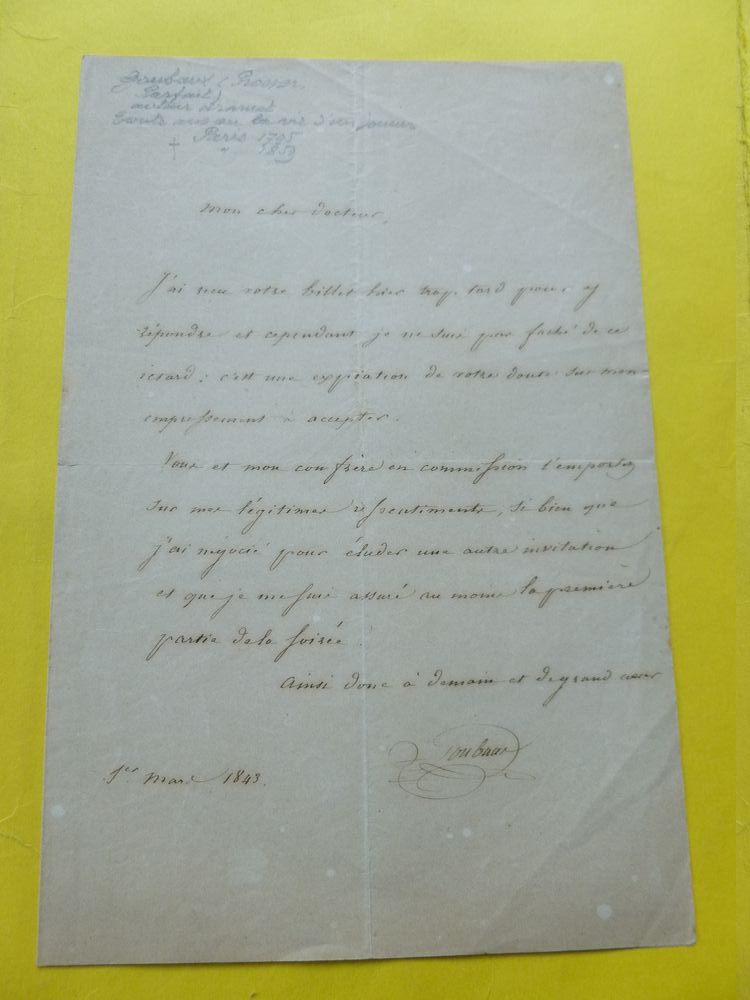 Goubaux (Prosper.
Parfait)
auteur dramat
Trente ans ou la vie d'un joueur
Paris 1795
† " 1859
Mon cher docteur,
J'ai reçu votre billet hier trop tard pour y
répondre et cependant je ne suis pas faché de ce
retard : c'est une expiation de votre doute sur mon
empressement à accepter.
Vous et mon confrère en commission l'emportez
sur mes légitimes ressentiments, si bien que
j'ai négocié pour éluder une autre invitation
et que je me suis assuré au moins la première
partie de la soirée.
Ainsi donc à demain et de grand cœur
Goubaux
1er Mars 1843.